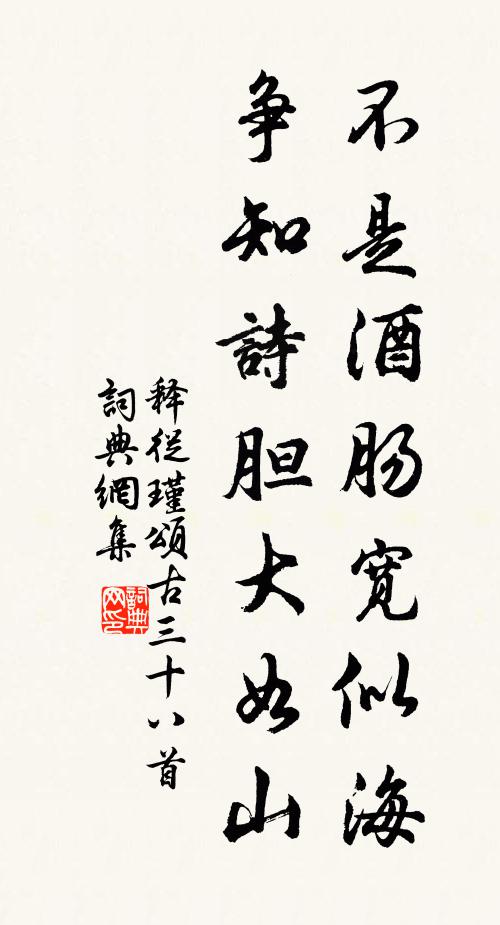 不是酒肠宽似海
争知詩胆大如山
释從瑾頌古三十八首
詞典網集
詞典网印